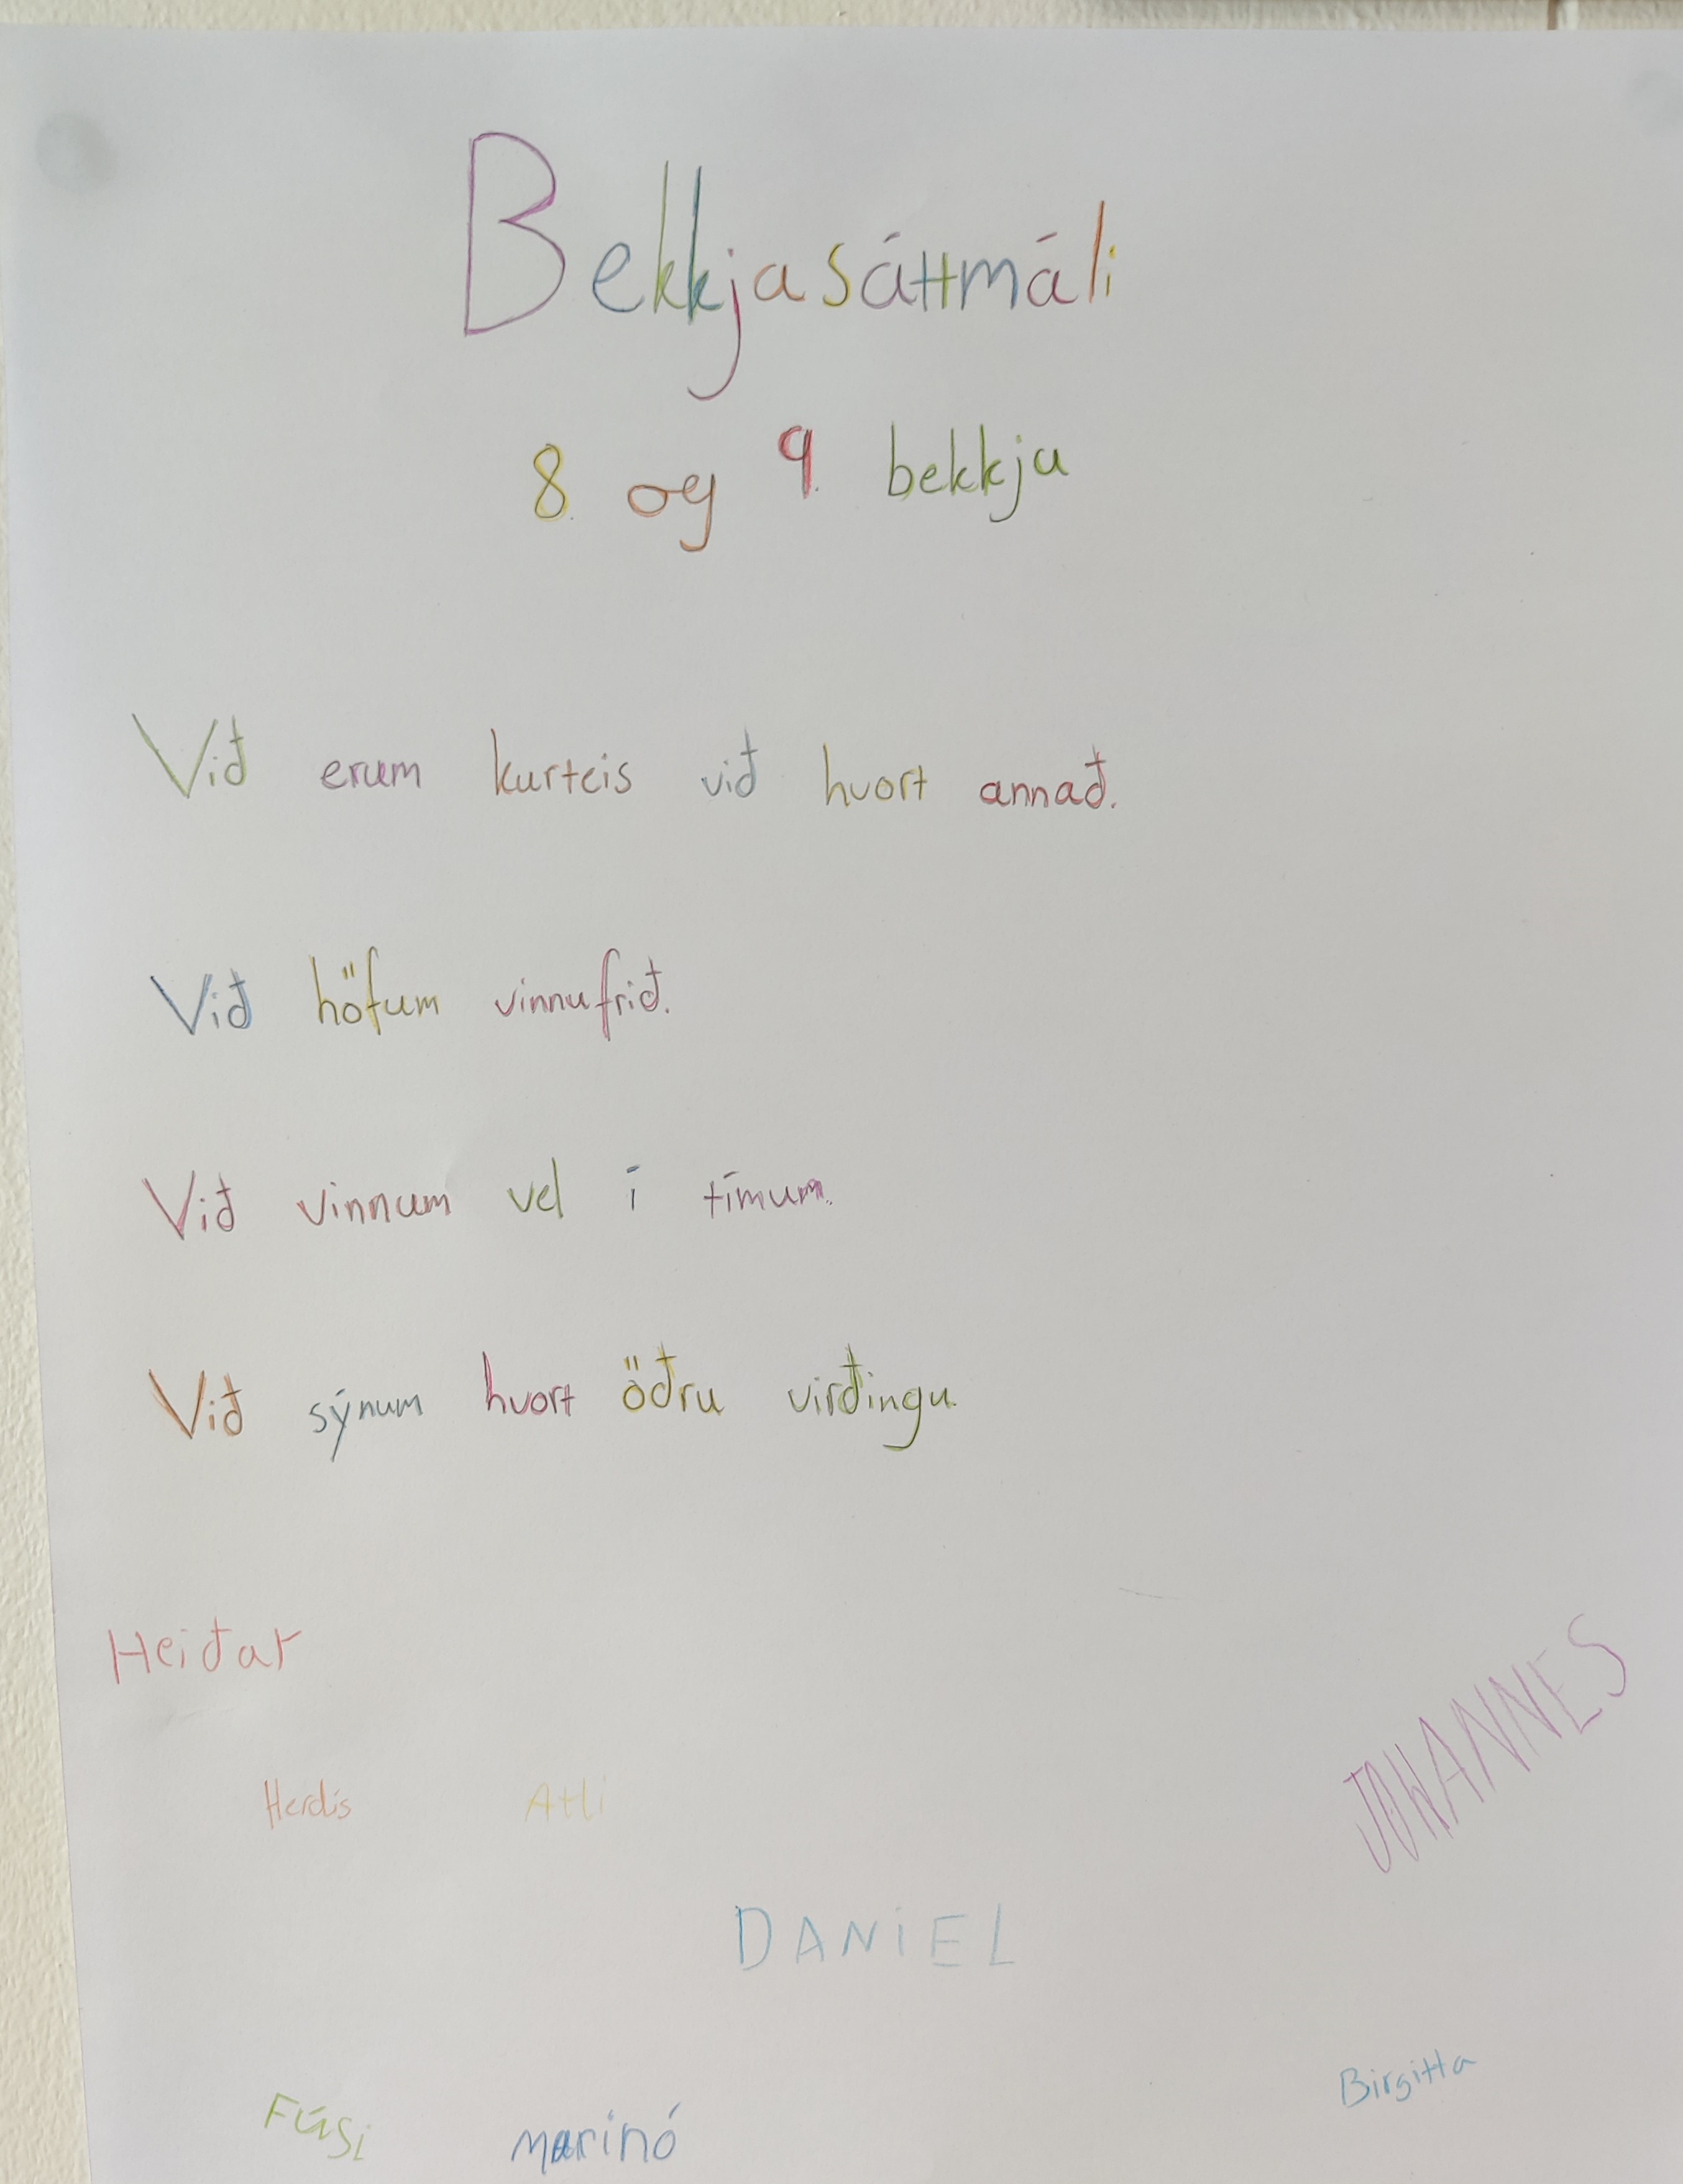 Bekkjasáttmáli
8. og 9. bekkja
Við erum kurteis við hvort annað.
Við höfum vinnufrið.
Við vinnum vel í tímum.
Við sýnum hvort öðru virðingu.
Heiðar
JOHANNES
Herdís Atli
DANiEL
Birgitta
Fúsi marinó